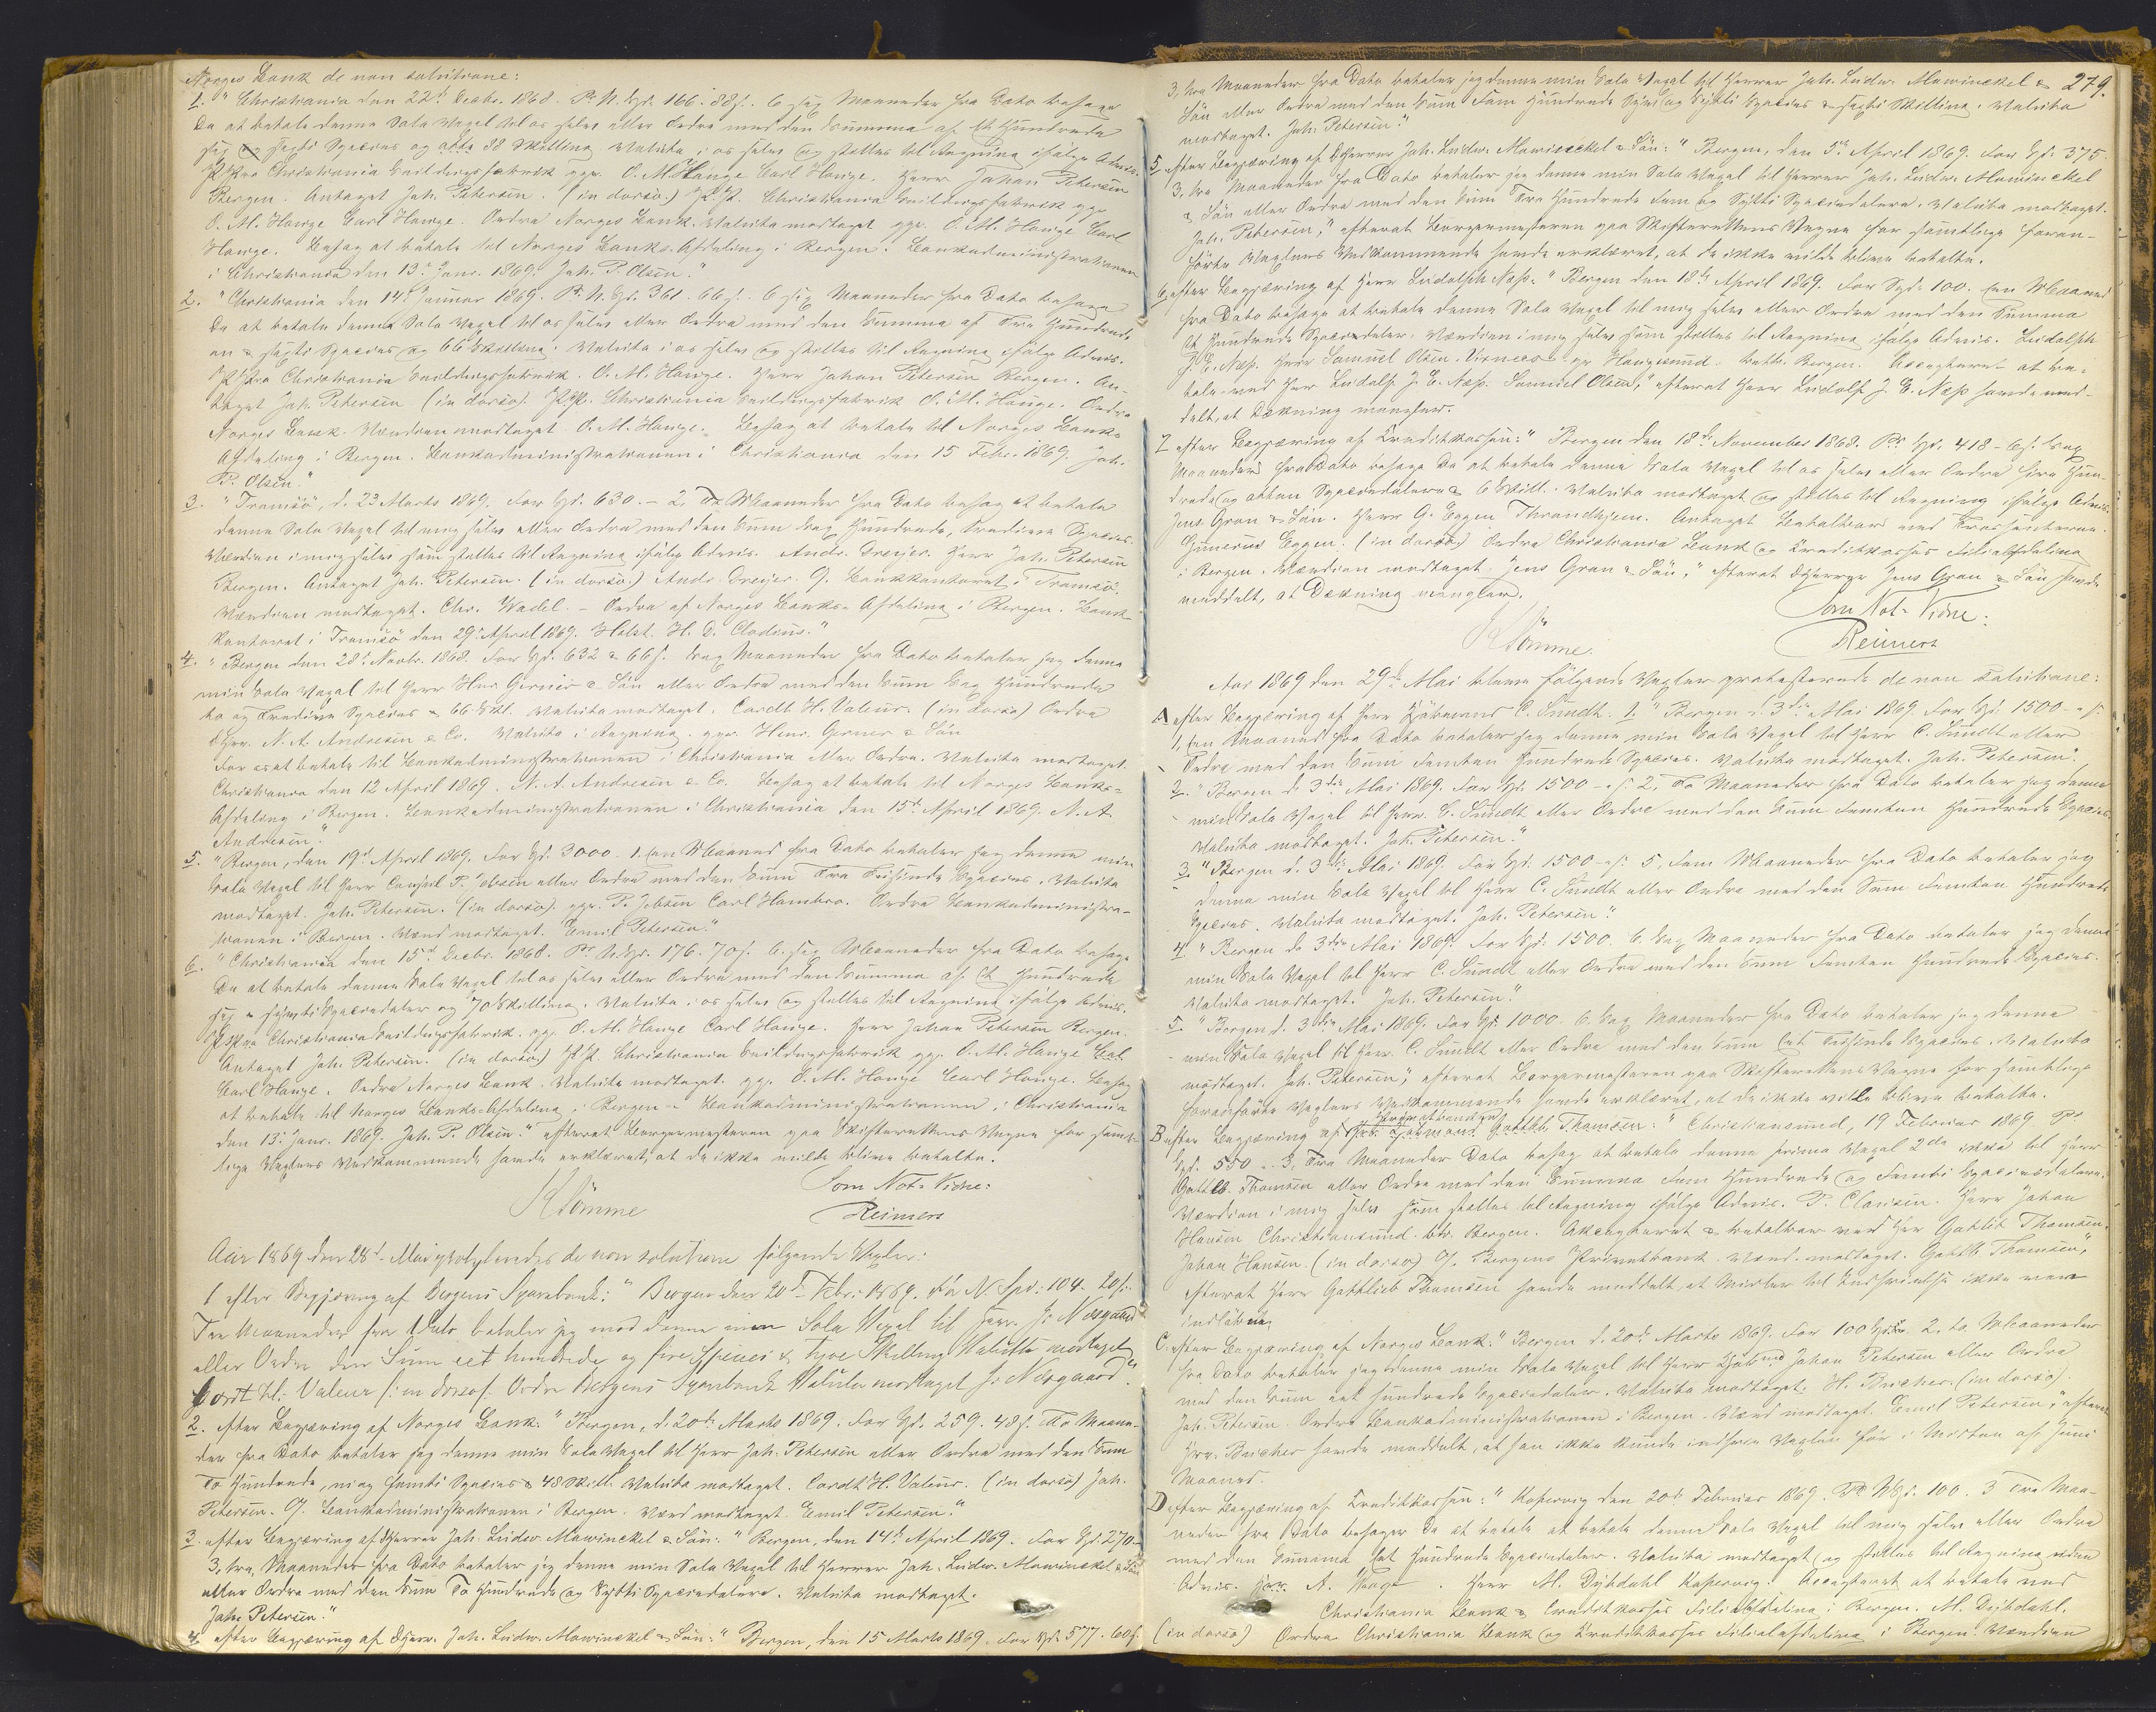 Norges Bank de non solutione:
1. "Christiania den 22d Decbr. 1868. Pr. N. Spd. 166. 88 s. 6 sex Maaneder fra Dato behage
De at betale denne Sola Vexel til os selv eller Ordre med den Summa af Et Hundrede
sex og sexti Species og otte 88 Skilling Valuta i os selv og stilles til Regning ifølge Advis.
P. Pro Christiania Seildugsfabrik ppr. O. M. Hauge Carl Hauge. Herr Johan Petersen
Bergen. Antaget Joh. Petersen. (in dorso.) P. P. Christiania Seildugsfabrik ppr
O. M. Hauge Carl Hauge. Ordre Norges Bank. Valuta modtaget ppr. O. M. Hauge Carl
Hauge. Behag at betale til Norges Banks Afdeling i Bergen. Bankadministrationen
i Christiania den 13d Janr. 1869. Joh. P. Olsen."
2. "Christiania den 14d Januar 1869. Pr. N. Spd. 361. 66 s. 6 sex Maaneder fra Dato behage
De at betale denne Sola Vexel til os selv eller Ordre med den Summa af Tre Hundrede
en & sexti Species og 66 Skilling. Valuta i os selv og stilles til Regning ifølge Advis.
P. Pro Christiania Seildugsfabrik. O. M. Hauge. Herr Johan Petersen Bergen. An-
taget Joh. Petersen (in dorso). P. P. Christiania Seildugsfabrik O. M. Hauge. Ordre
Norges Bank. Værdien modtaget O. M. Hauge. Behag at betale til Norges Banks
Afdeling i Bergen. Bankadministrationen i Christiania den 15 Febr. 1869. Joh.
P. Olsen."
3. "Tromsö, d. 23 Marts 1869. For Spd. 630. - 2, To Maaneder fra Dato behag at betale
denne Sola Vexel til mig selv eller Ordre med den Sum sex Hundrede, Tredive Species.
Værdien i mig selv som stilles til Regning ifølge Advis. Andr. Dreyer. Herr Joh. Petersen
Bergen. Antaget Joh. Petersen. (in dorso.) Andr. Dreyer. O. Bankkontoret i Tromsö.
Værdien modtaget. Chr. Wadel. - Ordre af Norges Banks Afdeling i Bergen. Bank
kontoret i Tromsö den 29d April 1869. Holst. H. D. Clodius."
4. "Bergen den 28d Novbr. 1868. For Spd. 632 & 66 s. sex Maaneder fra Dato betaler jeg denne
min Sola Vexel til Herr Henr Gerner & Sön eller Ordre med den Sum Sex Hundrede
to og Tredive Species & 66 Skl. Valuta modtaget. Cordt H. Valeur. (in dorso) Ordre
DHrr. N. A. Andresen & Co. Valuta i Regning. ppr. Henr. Gerner & Sön
For os at betale til Bankadministrationen i Christiania eller Ordre. Valuta modtaget.
Christiania den 12 April 1869. N. A. Andresen & Co. Behag at betale til Norges Banks=
Afdeling i Bergen. Bankadministrationen i Christiania den 15d April 1869. N. A.
Andresen."
5. "Bergen, den 19d April 1869. For Spd. 3000. 1. Een Maaned fra Dato betaler jeg denne min
Sola Vexel til Herr Consul P. Jebsen eller Ordre med den Sum Tre Tusinde Species. Valuta
modtaget. Joh. Petersen. (in dorso). ppr. P. Jebsen Carl Hambro. Ordre Bankadministra-
tionen i Bergen. Værd. modtaget. Emil Petersen."
6. "Christiania den 15d Decbr. 1868. Pr. N. Spd. 176. 70 s. 6. sex Maaneder fra Dato behage
De at betale denne Sola Vexel til os selv eller Ordre med den Summa af Et Hundrede
sex & sytti Speciedaler og 70 Skilling. Valuta i os selv og stilles til Regning ifølge Advis.
P. Pro Christiania Seildugsfabrik. pp. O. M. Hauge Carl Hauge. Herr Johan Petersen Bergen.
Antaget Joh. Petersen. (in dorso) P. P. Christiania Seildugsfabrik pp. O. M. Hauge
Carl Hauge. Ordre Norges Bank. Valuta modtaget. pp. O. M. Hauge Carl Hauge. Behag
at betale til Norges Banks Afdeling i Bergen. Bankadministrationen i Christiania
den 13d Janr. 1869. Joh. P. Olsen." efterat Borgermesteren paa Skifterettens Vegne for samt-
lige Vexlers Vedkommende havde erklæret, at de ikke vilde blive betalte.
Som Not: Vidne:
Reimers
Aar 1869 den 28d Mai protesteredes de non solutione følgende Vexler:
1 efter Begjæring af Bergens Sparebank: "Bergen den 20d Febr. 1869. For N. Spd: 104. 20 s.
Tre Maaneder fra Dato betaler jeg mod denne min Sola Vexel til Herr J: Nesgaard
eller Ordre den Sum eet hundrede og fire Species & tyve Skilling Valutta modtaget
Cordt H: Valeur /: in dorso/. Ordre Bergens Sparebank Valuta modtaget J: Nesgaard."
2. efter Begjæring af Norges Bank: "Bergen, d. 20d. Marts 1869. For Spd. 259. 48 s. To Maane-
der fra Dato betaler jeg denne min Sola Vexel til Herr Joh. Petersen eller Ordre med den Sum
To Hundrede, ni og femti Species & 48 Skill. Valuta modtaget. Cordt H. Valeur. (in dorso) Joh.
Petersen. O. Bankadministrationen i Bergen. Værd modtaget. Emil Petersen."
3. efter Begjæring af DHerrer Joh. Ludw. Mowinckel & Sön: "Bergen, den 14d April 1869. For Spd. 270.
3. tre, Maaneder fra Dato betaler jeg denne min Sola Vexel til Herrer Joh. Ludw. Mowinckel & Sön
eller Ordre med den Sum To Hundrede og Sytti Speciedalere. Valuta modtaget.
Joh. Petersen."
4. efter Begjæring af DHerr. Joh. Ludw. Mowinckel & Sön: "Bergen, den 15 Marts 1869. For Spd. 577. 60 s.
279.
3. tre Maaneder fra Dato betaler jeg denne min Sola Vexel til Herrer Joh. Ludw. Mowinckel &
Sön eller Ordre med den Sum Fem Hundrede Syv og Sytti Species & sexti Skilling. Valuta
modtaget. Joh. Petersen."
5 efter Begjæring af DHerrer Joh. Ludw. Mowinckel & Sön: "Bergen, den 5d April 1869. For Spd. 375.
3, tre Maaneder fra Dato betaler jeg denne min Sola Vexel til Herrer Joh. Ludw. Mowinckel
& Sön eller Ordre med den Sum Tre Hundrede Fem og Sytti Speciedalere. Valuta modtaget.
Joh. Petersen," efterat Borgermesteren paa Skifterettens Vegne for samtlige foran-
førte Vexlers Vedkommende havde erklæret, at de ikke vilde blive betalte.
6, efter Begjæring af Herr Ludolph Næss. "Bergen den 18d April 1869. For Spd. 100. Een Maaned
fra Dato behage at betale denne Sola Vexel til mig selv eller Ordre med den Summa
Et Hundrede Speciedaler. Værdien i mig selv som stilles til Regning ifølge Advis. Ludolph
J. E. Næss. Herr Samuel Olsen. pp Haugesund. betb. Bergen. Accepteret at be-
tale ved Herr Ludolf J. E. Næss. Samuel Olsen," efterat Herr Ludolf J. E. Næss havde med-
delt, at Dækning mangler.
7 efter Begjæring af Kreditkassen: "Bergen den 18d November 1868. Pr Spd. 418 - 6 s. Sex
Maaneder fra Dato behage De at betale denne Sola Vexel til os selv eller Ordre fire Hun-
drede og atten Speciedalere & 6 Skill. Valuta modtaget og stilles til Regning ifølge Advis.
Jens Gran & Sön. Herr G. Eggen Throndhjem. Antaget betalbar
Gunerius Eggen. (in dorso) Ordre Christiania Bank og Kreditkasses Filialafdeling
i Bergen. Værdien modtaget. Jens Gran & Sön," efterat DHerrer Jens Gran & Sön havde
meddelt, at Dækning mangler.
Som Not: Vidne:
Reimers
Aar 1869 den 29d Mai bleve følgende Vexler protesterede de non solutione:
A efter Begjæring af Herr Kjøbmand C. Sundt. 1. "Bergen d. 3die Mai 1869. For Spd. 1500 - s.
1, Een Maaned fra Dato betaler jeg denne min Sola Vexel til Herr C. Sundt eller
Ordre med den Sum Femten Hundrede Species. Valuta modtaget. Joh. Petersen."
2. "Bergen d: 3die Mai 1869. For Spd. 1500 - s. 2, To Maaneder fra Dato betaler jeg denne
min Sola Vexel til Herr C. Sundt eller Ordre med den Sum Femten Hundrede Species.
Valuta modtaget. Joh. Petersen."
3. "Bergen d. 3die Mai 1869. For Spd. 1500 - s. 5 Fem Maaneder fra Dato betaler jeg
denne min Sola Vexel til Herr C. Sundt eller Ordre med den Sum Femten Hundrede
Species. Valuta modtaget. Joh. Petersen."
4. "Bergen d. 3die Mai 1869. For Spd. 1500. 6. Sex Maaneder fra Dato betaler jeg denne
min Sola Vexel til Herr C. Sundt eller Ordre med den Sum Femten Hundrede Species.
Valuta modtaget. Joh. Petersen."
5. "Bergen d. 3die Mai 1869. For Spd. 1000. 6. Sex Maaneder fra Dato betaler jeg denne
min Sola Vexel til Herr. C. Sundt eller Ordre med den Sum Eet Tusinde Species. Valuta
modtaget. Joh. Petersen," efterat Borgermesteren paa Skifterettens Vegne for samtlige
foranførte Vexlers Vedkommende havde erklæret, at de ikke ville blive betalte.
Privatbanken
B efter Begjæring af Gottlb. Thomsen: "Christiansund, 19 Februar 1869. Pr
Spd. 550. 3, Tre Maaneder Dato behag at betale denne prima Vexel 2da ikke til Herr
Gottlb. Thomsen eller Ordre med den Summa Fem Hundrede og Femti Speciesdalere.
Værdien i mig selv som stilles til Regning ifølge Advis. P. Clausen. Herr Johan
Hansen Christiansund. btb. Bergen. Accepteret & betalbar ved Herr Gottlib Thomsen.
Johan Hansen. (in dorso) O. Bergens Privatbank. Værd. modtaget. Gottlb. Thomsen,"
efterat Herr Gottlieb Thomsen havde meddelt, at Midler til Indfrielse ikke vare
indløbne.
C. efter Begjæring af Norges Bank: "Bergen d. 20d. Marts 1869. For 100 Spd. 2. to Maaneder
fra Dato betaler jeg denne min Sola Vexel til Herr Kjøbmd Johan Petersen eller Ordre
med den Sum eet hundrede Speciedaler. Valuta modtaget. H. Bucher. (in dorso).
Joh. Petersen. Ordre Bankadministrationen i Bergen. Værd modtaget. Emil Petersen," efterat
Hrr. Bucher havde meddelt, at han ikke kunde indfrie Vexlen før i Midten af Juni
Maaned.
D efter Begjæring af Kreditkassen: "Kopervig den 20d. Februar 1869. Pr. N Spd. 100. 3 Tre Maa-
neder fra Dato behager De at betale at betale denne Sola Vexel til mig selv eller Ordre
med den Summa Et Hundrede Speciedaler. Valuta modtaget og stilles til Regning uden
Advis. A. Waage. Herr M. Dybdahl Kopervig. Accepteret at betale ved
Christiania Bank & Creditkasses Filialafdeling i Bergen. M. Dybdahl.
(in dorso) Ordre Christiania Bank og Kreditkasses Filialafdeling i Bergen. Værdien